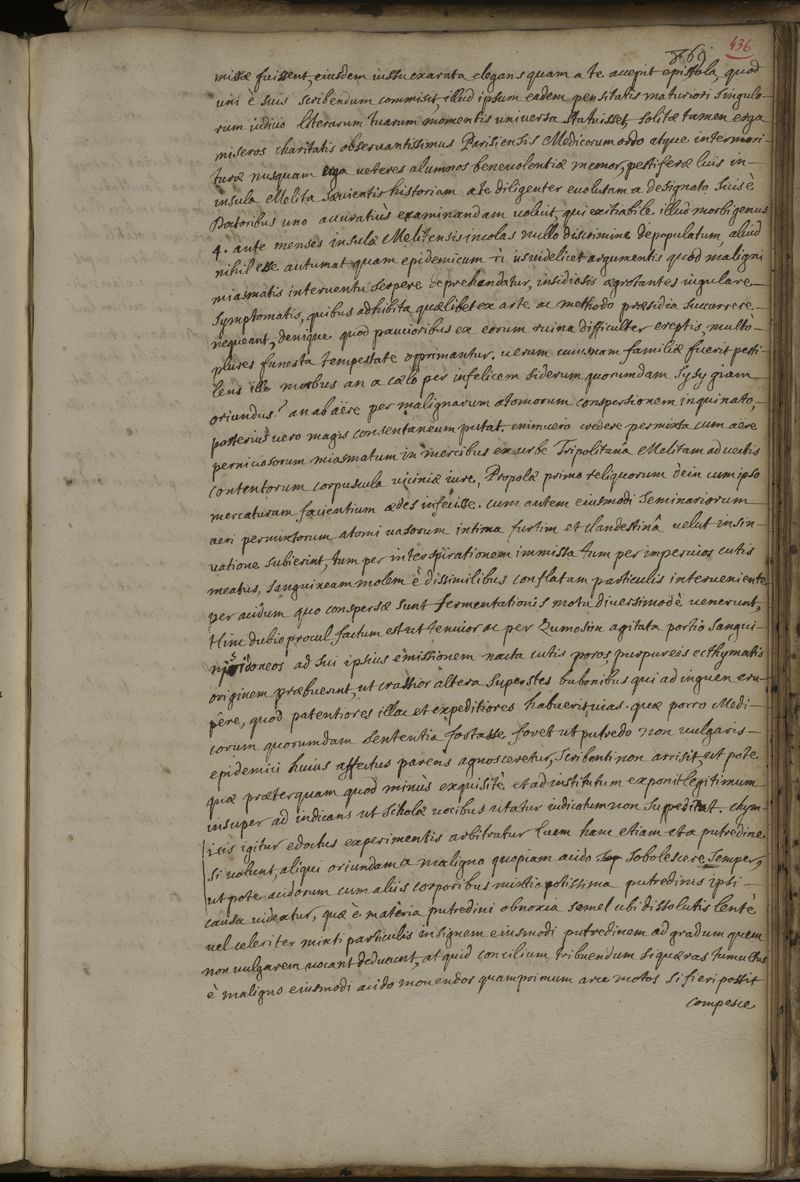 436
769
missæ fuissent, eiusdem iussu exarata elegans quam a te accepit epistola, quod
uni è suis scribendum commisit, illud ipsum eadem pensitatis maturiori singulo-
rum iudicio literarum tuarum momentis universa statuisset, solitæ tamen erga
miseros charitatis observantissimus Parisiensis Medicorum ordo atque intermori-
turæ nusquam erga veteres alumnos benevolentiæ memor, pestiferæ luis in-
insula Melita sævientis historiam a te diligenter evolutam a designato suis è
Doctoribus uno accuratiùs examinandam voluit, qui exitiabile illud morbi genus
4. ante menses insulæ Melitensis incolas nullo discrimine depopulatum, aliud
nihil esse autumat quam epidemicum τι iis videlicet argumentis quòd maligni
miasmatis interventu serpere deprehendatur, insidiosis ægrotantes iugulare
symptomatis, quibus adhibita quælibet ex arte ac methodo præsidia succurrere
nequeant, denique quod paucioribus ex eorum ruina difficulter ereptis, multò-
plures funesta tempestate opprimantur. verum cuiusnam familiæ fuerit pesti-
lens ille morbus an a cælo per infelicem siderum quorumdam syzygiam
oriundus? an ab aëre per malignarum atomorum conspersionem inquinato,
posterius vero magis consentaneum putat. enimvero credere permixta cum aëre
perniciosorum miasmatum in mercibus ex urbe Tripolitana Melitam advectis
contentorum corpuscula viciniæ iure, Propolæ primo reliquorum dein cum ipso
mercaturam facientium ædes infecisse. cum autem eiusmodi seminariorum
aeri permixtorum atomi vasorum intima furtim et clandestinâ velut insin-
uatione subierint, tum per interspirationem immissa tum per impervios cutis
meatus, sanguineam molem è dissimilibus conflatam particulis interveniente
per acidum quo conspersæ sunt fermentationis motu diversimodè venerunt,
Hinc dubio procul factum est ut tenuior ac per Zumosim agitata portio sangui-
nis idoneos ad sui ipsius emissionem nacta cutis poros, purpureis ecthymatis
originem præbuerint, ut crassior altera superstes bubonibus qui ad inguen eru-
pêre, quod patentiores illac et expeditiores habuerit vias. quæ porro Medi-
corum quorumdam sententia fortasse foret ut putredo non vulgaris
epidemici huius affectus parens agnosceretur, scribenti non arrisit, ut pote
quæ præterquam quod minùs exquisitè et ad institutum exponit legitimum
insuper ad indicans ut Scholæ vocibus utatur indicatum non suppeditat. chym-
icis igitur edoctus experimentis arbitratur luem hanc etiam et a putredine
si volunt, aliqui oriundam a maligno quopiam acido sobolescere semper,
ut pote acidorum cum aliis corporibus mixtio potissima putredinis ipsi
causa videatur, quæ è materia putredini obnoxia semel ubi dissolutis lentè
vel celeriter mixti particulis insignem eiusmodi putredinem ad gradum quem
non vulgarem vocant deducunt, at quid concilium tribuendum si quæras tumultus
è maligno eiusmodi acido movendos quamprimum arce motos si fieri possit
compesce